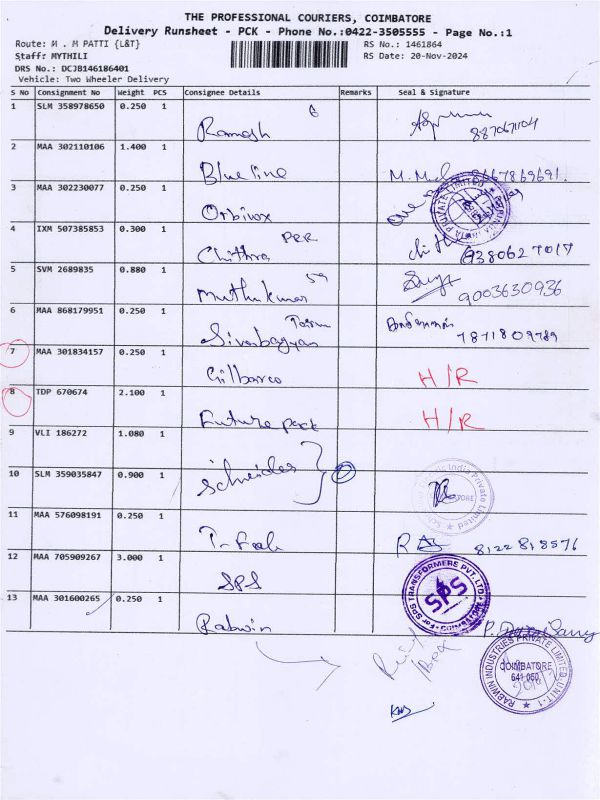 THE PROFESSIONAL COURIERS, COIMBATORE
Delivery Runsheet - PCK - Phone No.:0422-3505555 - Page No.:1
Route: M . M PATTI {L&T} RS No.: 1461864
Staff: MYTHILI RS Date: 20-Nov-2024
DRS No.: DCJB146186401
Vehicle: Two Wheeler Delivery
S No Consignment No Weight PCS Consignee Details Remarks Seal & Signature
1 SLM 358978650 0.250 1
Ramesh
2 MAA 302110106 1.400 1
Blueline 8667869691
3 MAA 302230077 0.250 1
Orbivox
4 IXM 507385853 0.300 1
Chithra 9380627017
5 SVM 2689835 0.880 1
Muthukumar 9003630936
6 MAA 868179951 0.250 1
Sivabagyam 7871809789
7 MAA 301834157 0.250 1
Gilbarco H/R
8 TDP 670674 2.100 1
Future pack H/R
9 VLI 186272 1.080 1
Schneider
10 SLM 359035847 0.900 1
11 MAA 576098191 0.250 1
8122818576
12 MAA 705909267 3.000 1
SPS
For SPS TRANSFORMERS PVT. LTD.
SPS
13 MAA 301600265 0.250 1
Rabwin
RABWIN INDUSTRIES PRIVATE LIMITED-UNIT-1
COIMBATORE
641 050